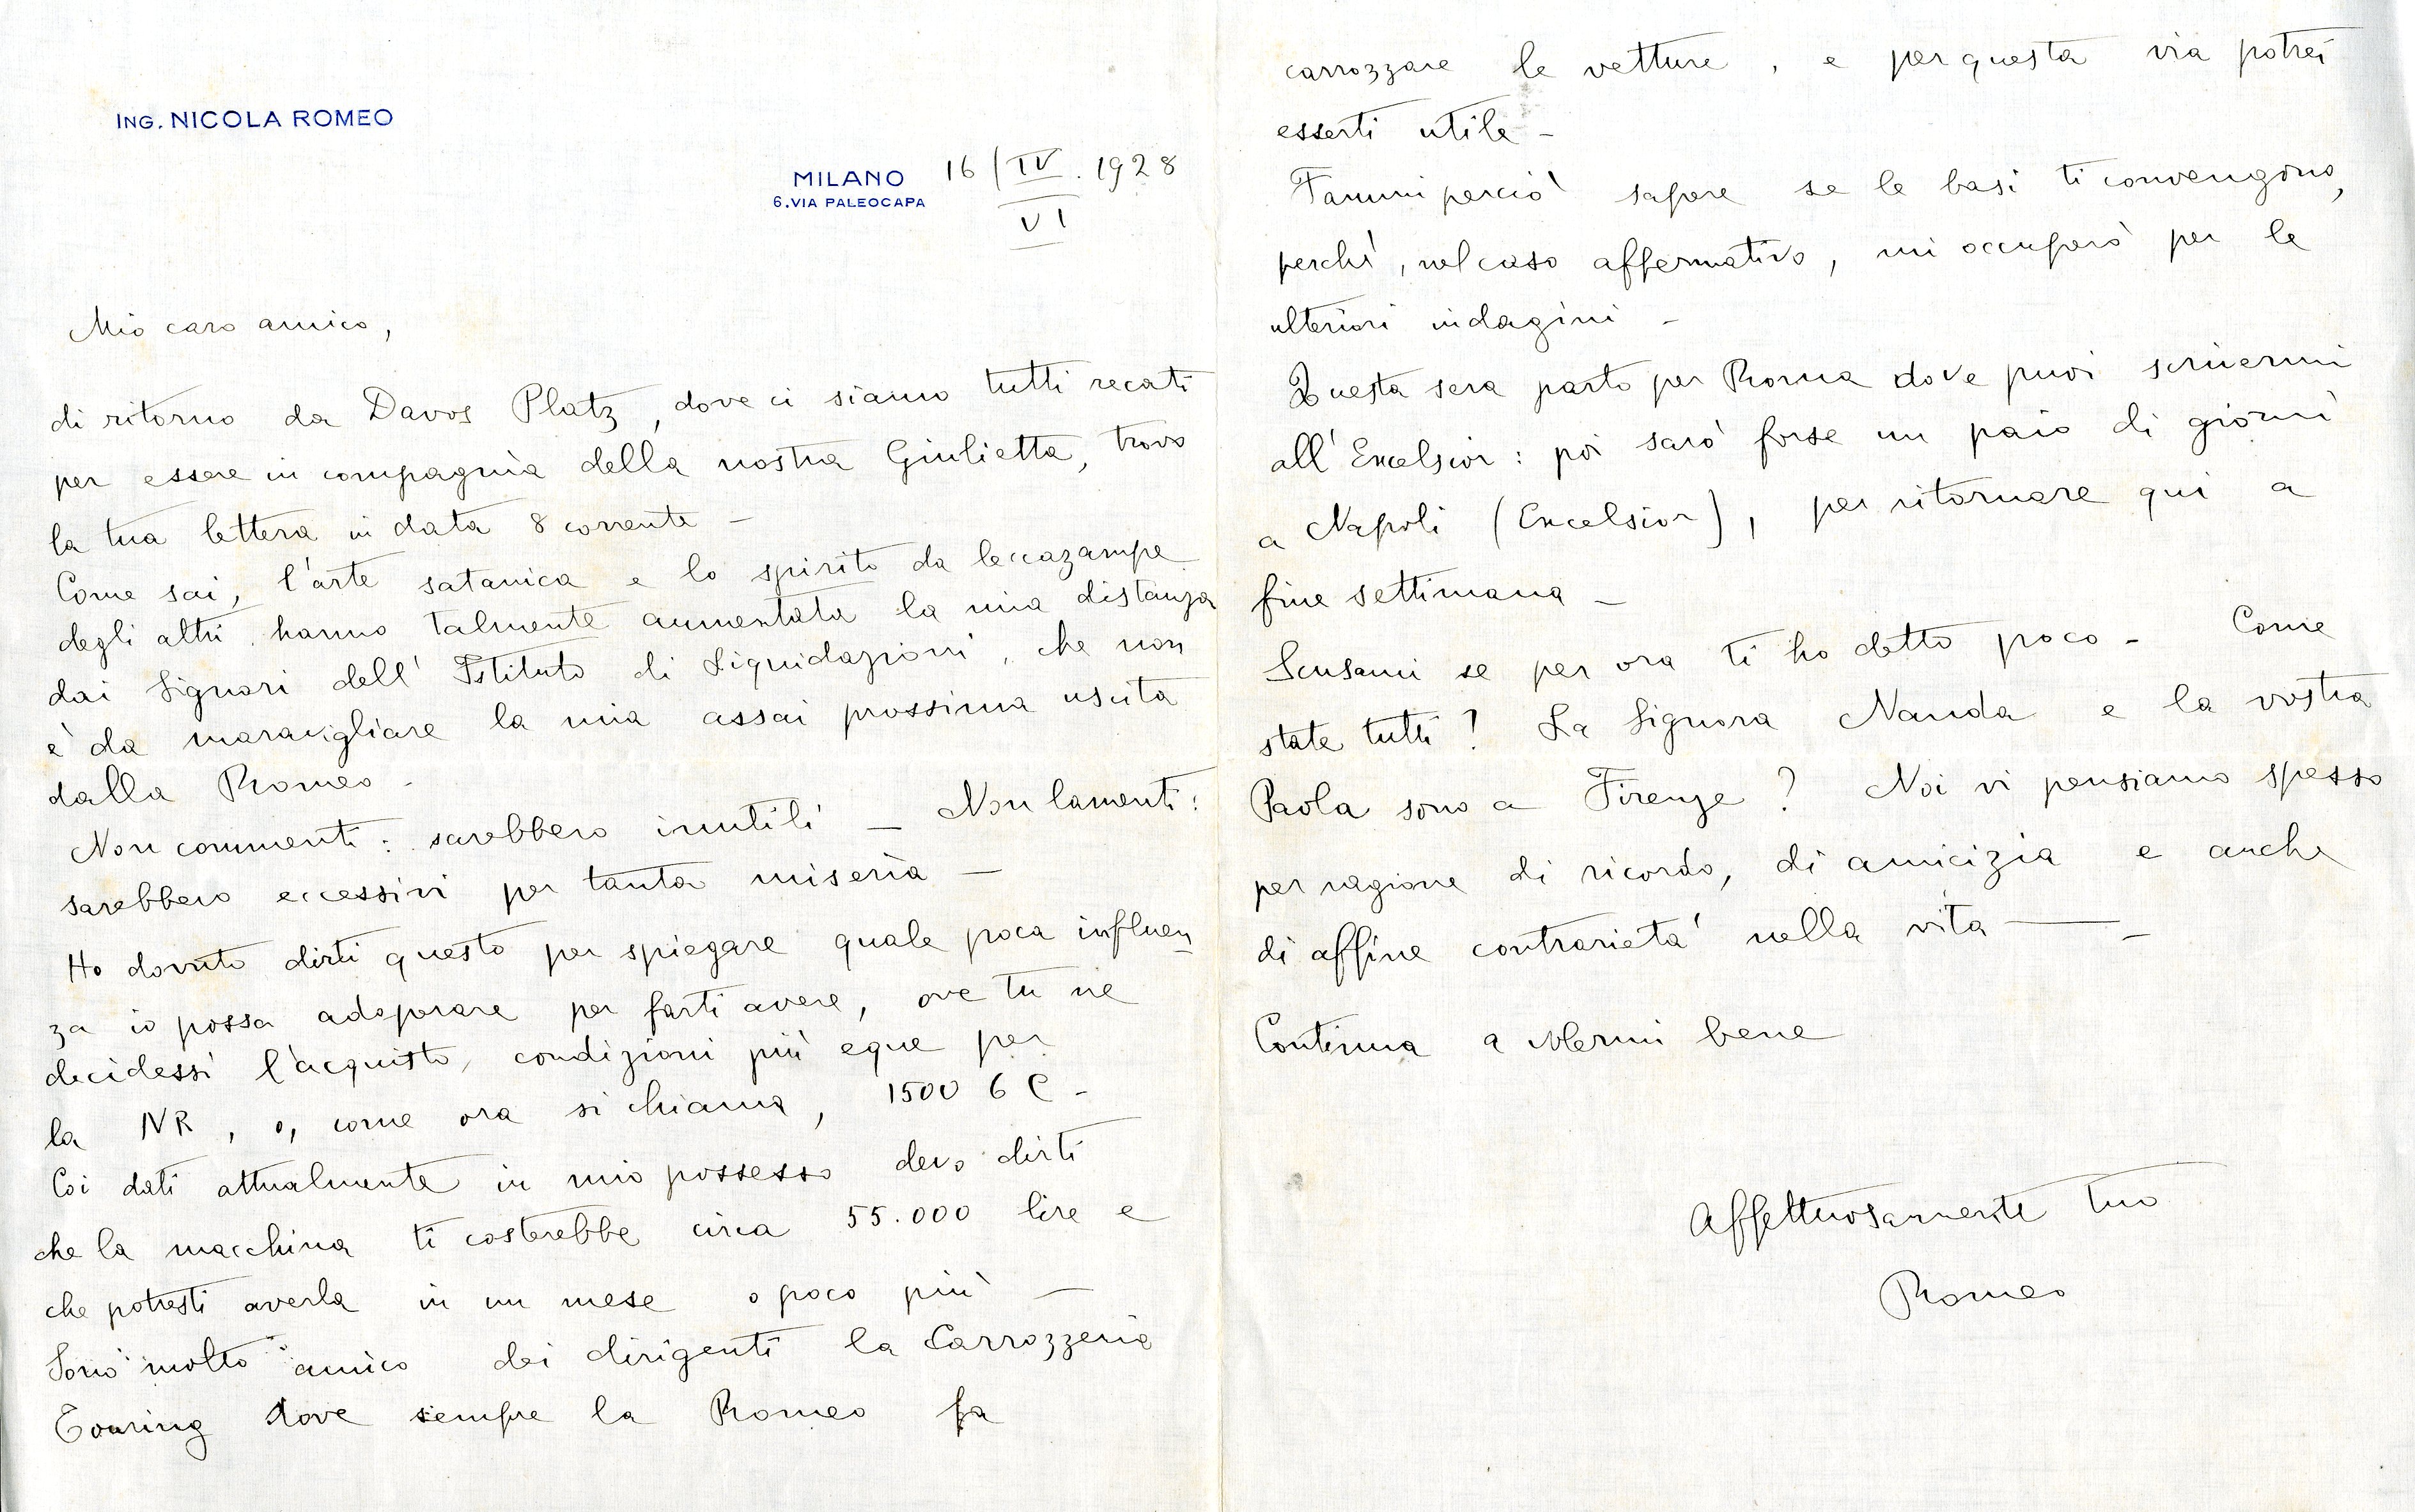 ING. NICOLA ROMEO
MILANO 16/IV.1928
6.VIA PALEOCAPA VI
Mio caro amico,
di ritorno da Davos Platz, dove ci siamo tutti recati
per essere in compagnia della nostra Giulietta, trovo
la tua lettera in data 8 corrente -
Come sai, l'arte satanica e lo spirito da leccazampe
degli altri hanno talmente aumentata la mia distanza
dai Signori dell'Istituto di Liquidazioni, che non
è da maravigliare la mia assai prossima uscita
dalla Romeo -
Non commenti: sarebbero inutili - Non lamenti:
sarebbero eccessivi per tanta miseria -
Ho dovuto dirti questo per spiegare quale poca influen
za io possa adoprare per farti avere, ove tu ne
decidessi l'acquisto, condizioni più eque per
la NR, o, come ora si chiama, 1500 6 C -
Coi dati attualmente in mio possesso devo dirti
che la macchina ti costerebbe circa 55.000 lire e
che potresti averla in un mese o poco più -
Sono "molto" amico dei dirigenti la Carrozzeria
Touring dove sempre la Romeo fa
carrozzare le vetture, e per questa via potrei
esserti utile -
Fammi perciò sapere se le basi ti convengono,
perchè, nel caso affermativo, mi occuperò per le
ulteriori indagini -
Questa sera parto per Roma dove puoi scrivermi
all'Excelsior: poi sarò forse un paio di giorni
a Napoli (Excelsior), per ritornare qui a
fine settimana -
Scusami se per ora ti ho detto poco - Come
state tutti? La Signora Nanda e la vostra
Paola sono a Firenze? Noi vi pensiamo spesso
per ragione di ricordo, di amicizia e anche
di affine contrarietà nella vita -
Continua a volermi bene
Affettuosamente tuo
Romeo